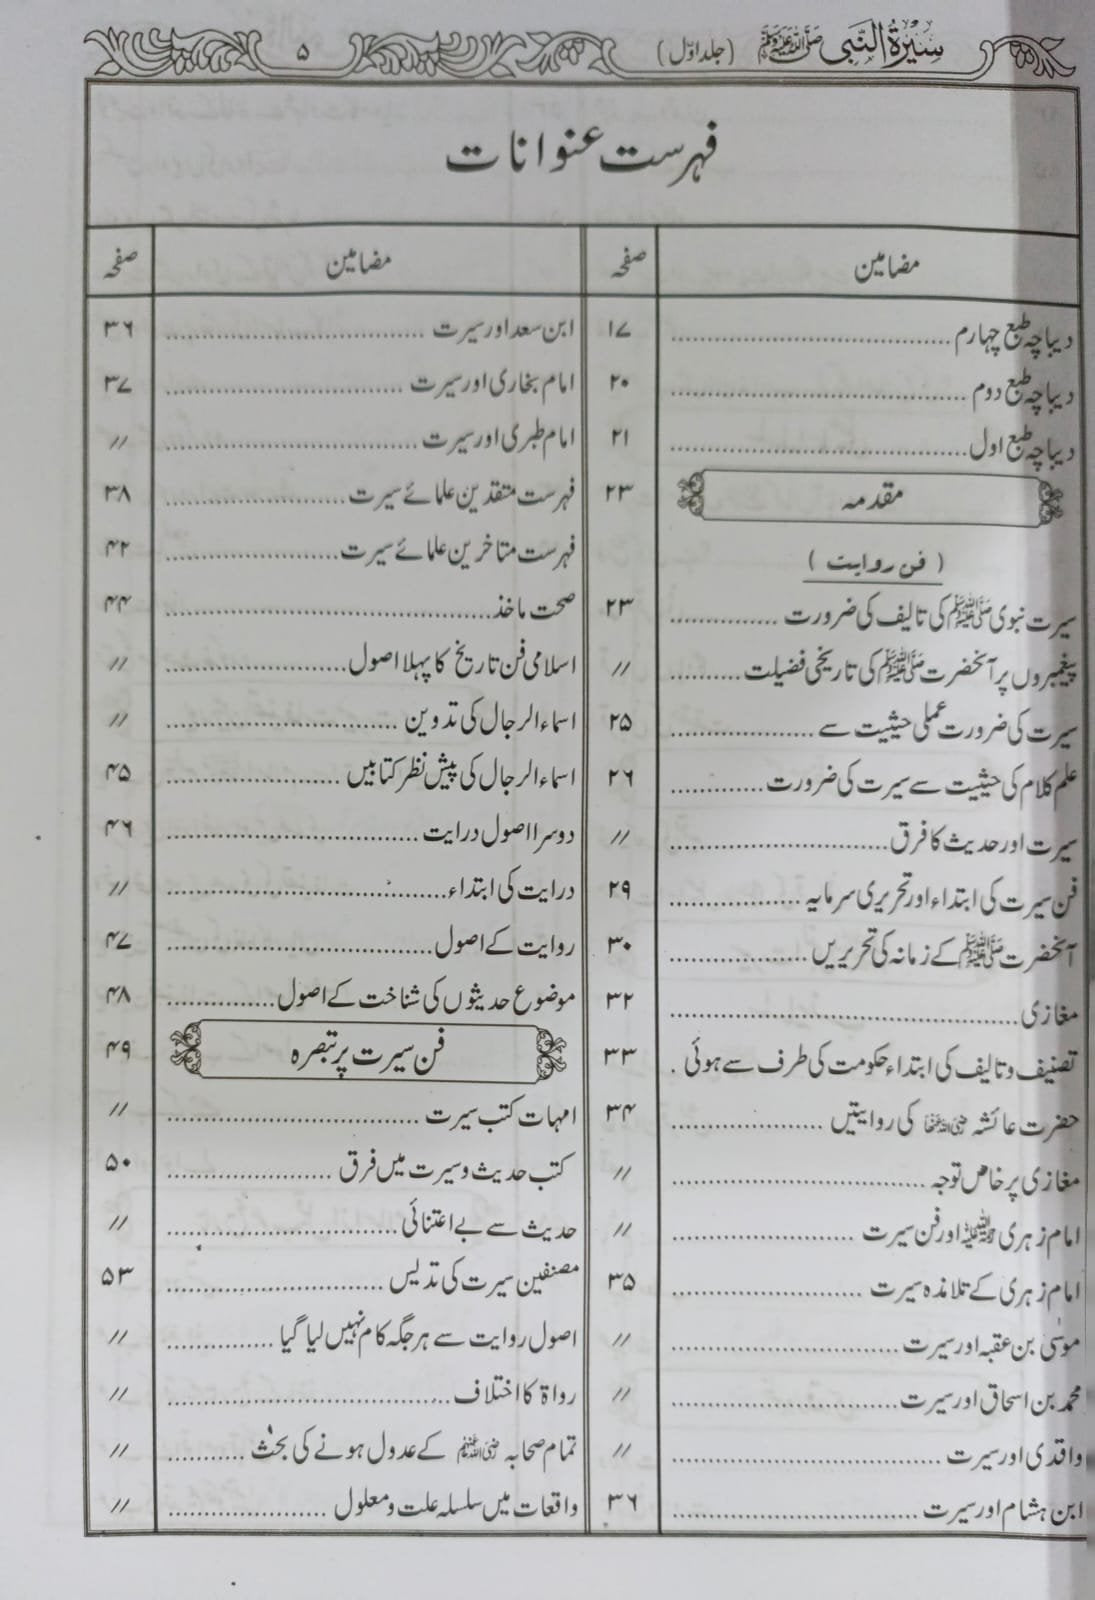 سیرۃ النبی ﷺ (جلد اوّل) ۵
فہرست عنوانات
مضامین صفحہ
دیباچہ طبع چہارم ۱۷
دیباچہ طبع دوم ۲۰
دیباچہ طبع اول ۲۱
مقدمہ ۲۳
(فن روایت)
سیرت نبوی ﷺ کی تالیف کی ضرورت ۲۳
پیغمبروں پر آنحضرت ﷺ کی تاریخی فضیلت //
سیرت کی ضرورت عملی حیثیت سے ۲۵
علم کلام کی حیثیت سے سیرت کی ضرورت ۲۶
سیرت اور حدیث کا فرق //
فن سیرت کی ابتداء اور تحریری سرمایہ ۲۹
آنحضرت ﷺ کے زمانہ کی تحریریں ۳۰
مغازی ۳۲
تصنیف و تالیف کی ابتداء حکومت کی طرف سے ہوئی ۳۳
حضرت عائشہ رضی اللہ عنہا کی روایتیں ۳۴
مغازی پر خاص توجہ //
امام زہری رحمۃ اللہ علیہ اور فن سیرت //
امام زہری کے تلامذہ سیرت ۳۵
موسیٰ بن عقبہ اور سیرت //
محمد بن اسحاق اور سیرت //
واقدی اور سیرت //
ابن ہشام اور سیرت ۳۶
مضامین صفحہ
ابن سعد اور سیرت ۳۶
امام بخاری اور سیرت ۳۷
امام طبری اور سیرت //
فہرست متقدین علمائے سیرت ۳۸
فہرست متاخرین علمائے سیرت ۴۲
صحت ماخذ ۴۴
اسلامی فن تاریخ کا پہلا اصول //
اسماء الرجال کی تدوین //
اسماء الرجال کی پیش نظر کتابیں ۴۵
دوسرا اصول درایت ۴۶
درایت کی ابتداء //
روایت کے اصول ۴۷
موضوع حدیثوں کی شناخت کے اصول ۴۸
فن سیرت پر تبصرہ ۴۹
امہات کتب سیرت //
کتب حدیث و سیرت میں فرق ۵۰
حدیث سے بے اعتنائی //
مصنفین سیرت کی تدلیس ۵۳
اصول روایت سے ہر جگہ کام نہیں لیا گیا //
رواۃ کا اختلاف //
تمام صحابہ رضی اللہ عنہم کے عدول ہونے کی بحث //
واقعات میں سلسلہ علت و معلول //